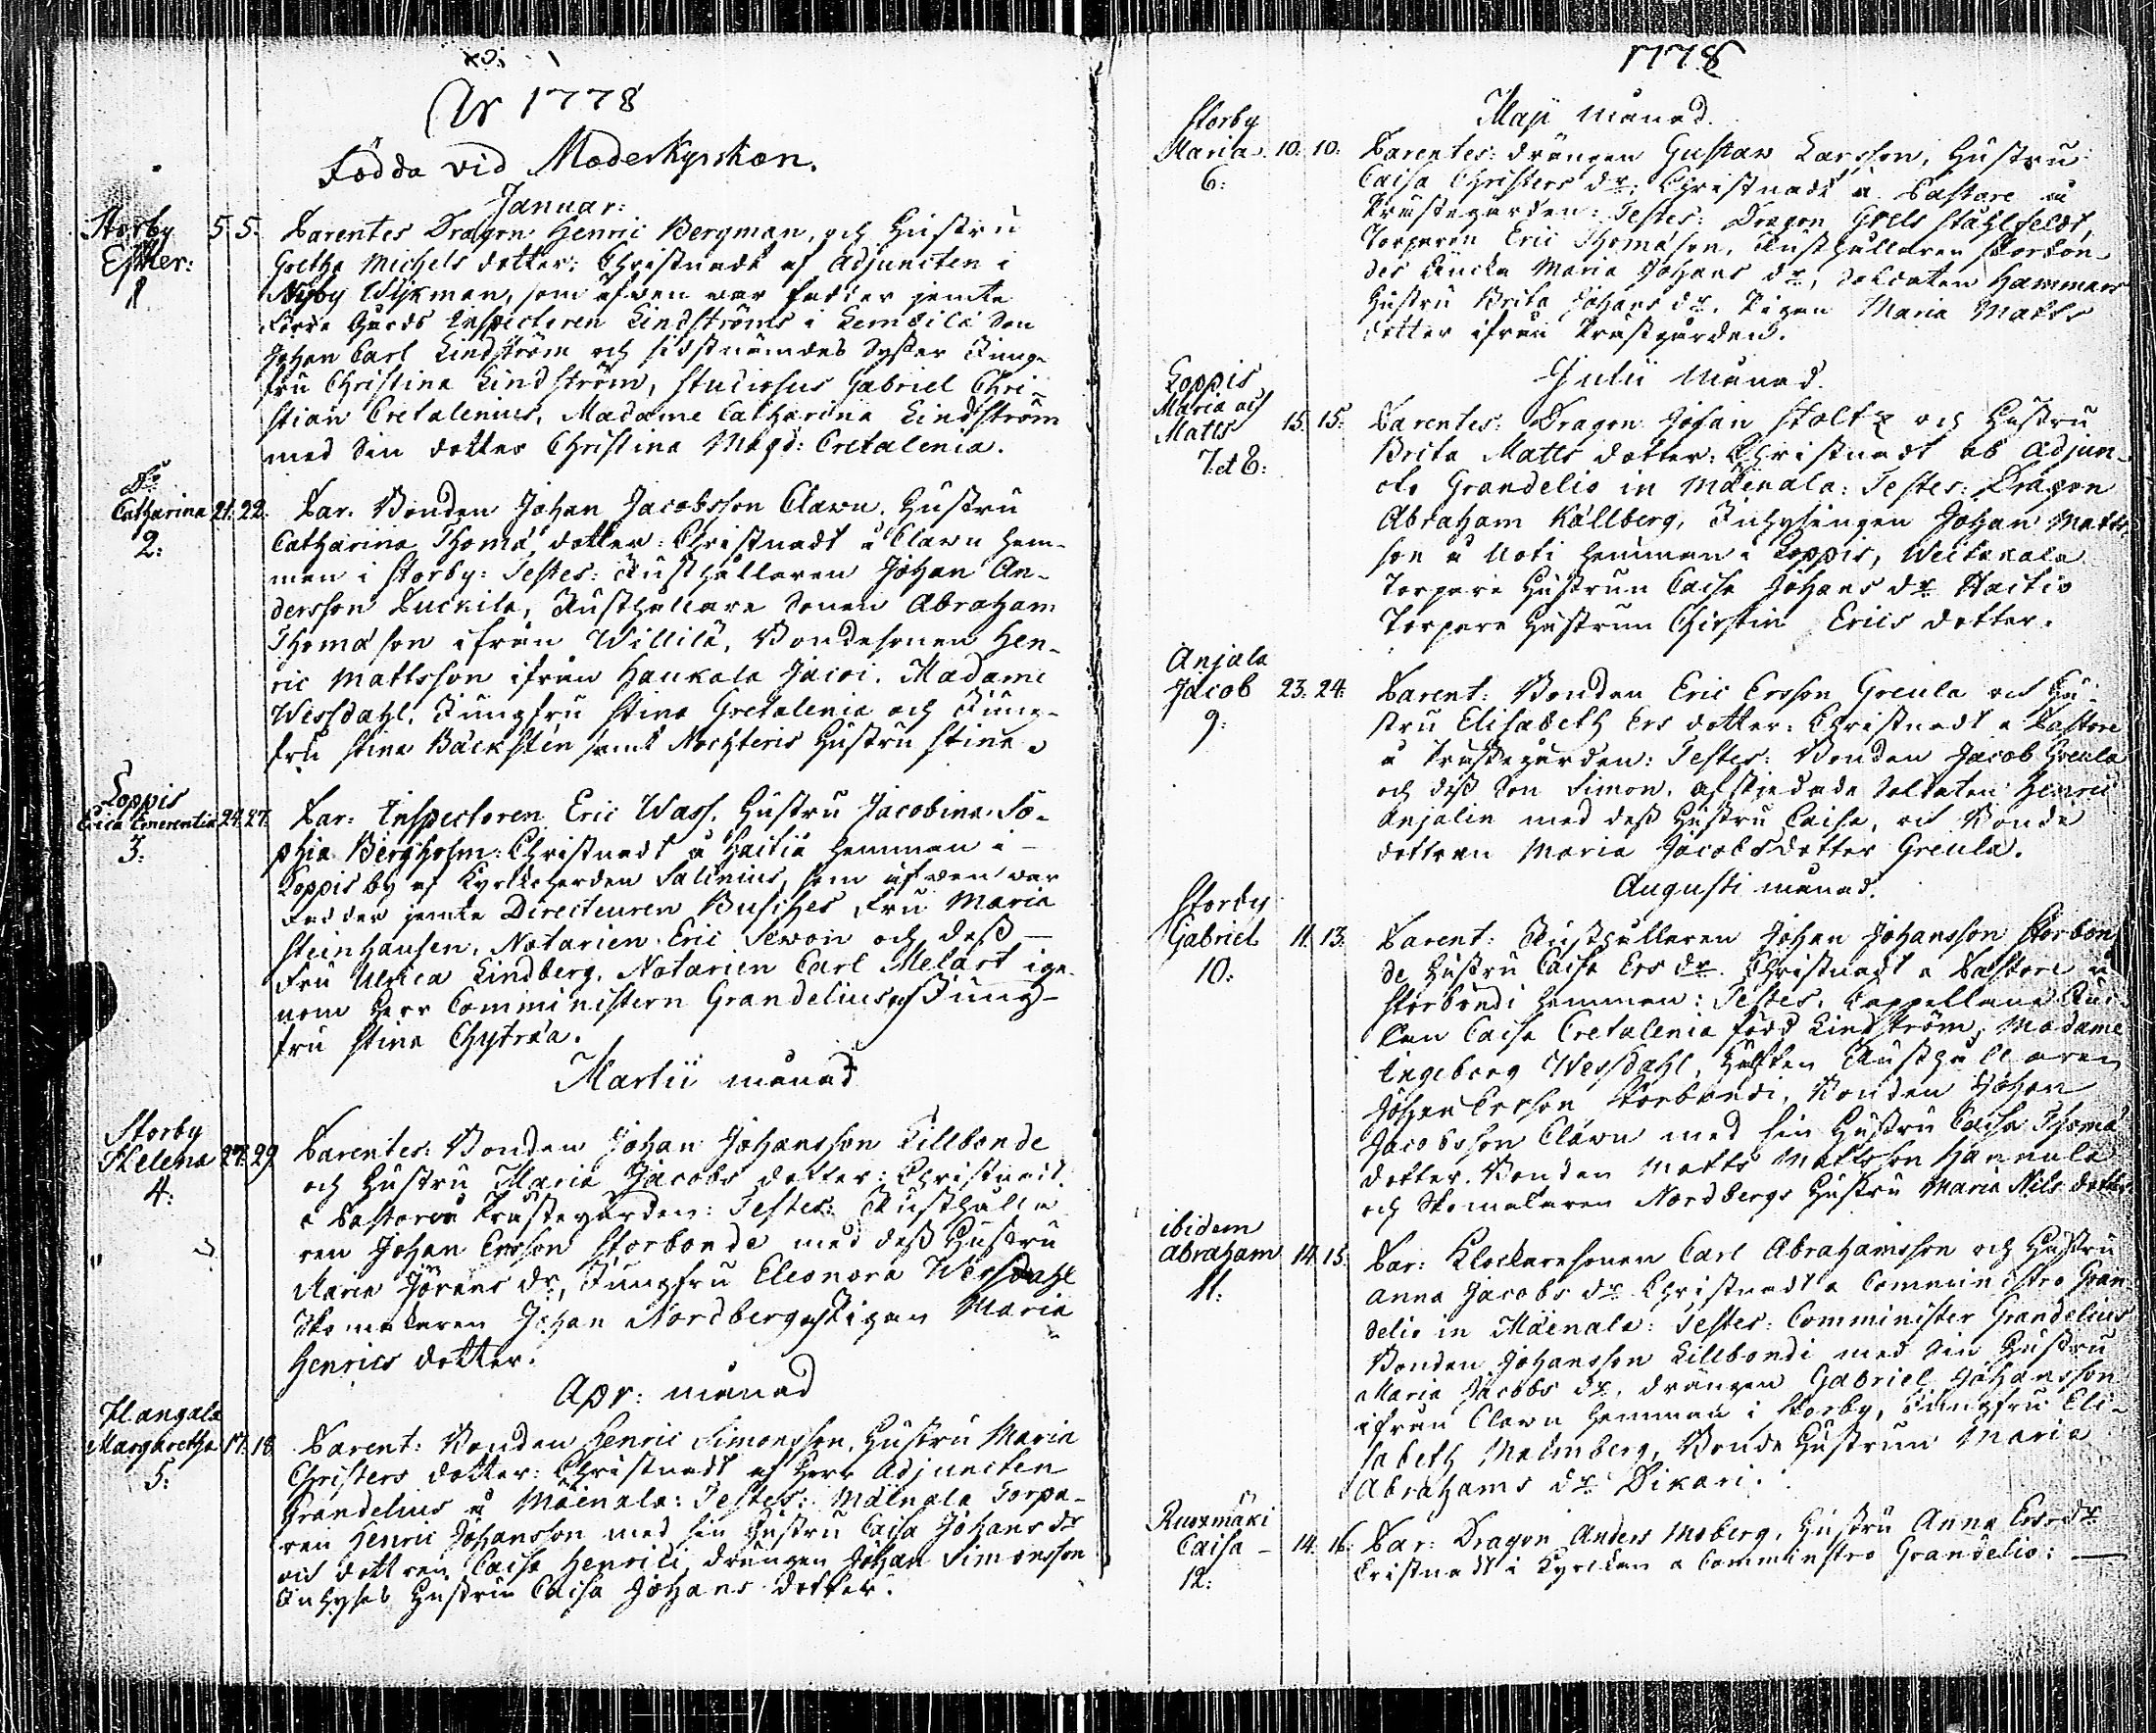 År 1778
Födda vid Moderkyrckan.
Januar:
Storby 5. 5. Parentes Dragon Henric Bergman, och Hustru
Esther: Gretha Michels dotter: Christnadt af Adjuncten i
1 Nyby Wijkman, som äfven var fadder jemte
Gårds Inspectoren Lindströms i Lembilä Son
Johan Carl Lindström och sidstnämdes Syster Jung-
fru Christina Lindström, Studiosus Gabriel Chri-
stian Cretalenius, Madame Catharina Lindström
med Sin dotter Christina Magd: Cretalenia.
Do
Catharina 21. 22. Par. Bonden Johan Jacobsson Clawu. Hustru
2: Catharina Thomæ dotter: Christnadt å Clawu hem-
man i Storby: Testes: Rusthållaren Johan An-
dersson Luckila, Rusthållare Sonen Abraham
Thomæson ifrån Willilä, Bondesonen Hen-
ric Mattsson ifrån Haukala Jacoi. Madame
Wessdahl, Jungfru Stina Cretalenia och Jung-
fru Stina Bäckstén samt Hustru Stina
Loppis
Erica Emerentia 24. 27. Par: Inspectoren Eric Wass. Hustru Jacobina So-
3: phia Bergholm: Christnadt å Haitia hemman i
Loppis by af Kyrckoherden Salenius, som äfven var
Fadder jemte Directeuren Busches Fru Maria
Steinhausen, Notarien Eric Sewon och dess
Fru Ulrica Lindberg, Notarien Carl Melart ige-
nom Herr Comministern Grandelius och Jung-
fru Stina Chytræa.
Martii månad
Storby
Helena 27. 29 Parentes: Bonden Johan Johansson Lillbonde
4: och Hustru Maria Jacobs dotter: Christnadt
a Pastore å Prästegården: Testes: Rusthålla
ren Johan Ersson Storbonde med dess Hustru
Maria Jörans dr, Jungfru Eleonora Wessdahl
Skomakaren Johan Nordberg och Pigan Maria
Henrics dotter.
Apr: månad
Hangala
Margaretha 17. 18 Parent: Bonden Henric Simonsson, Hustru Maria
5: Christers dotter: Christnadt af Herr Adjuncten
Grandelius å Mäenala: Testes: Mäenala Torpa-
ren Henric Johansson med sin Hustru Caisa Johans dr
och dottren Caisa Henrici, drängen Johan Simonsson
Inhyses Hustrun Caisa Johans dotter.
1778
Maji månad.
Storby
Maria 10. 10: Parentes: drängen Gustav Larsson, Hustru
6: Caisa Christers dr: Christnadt a Pastore å
Prästegården: Testes: Dragon Grels Ståhlfeldt,
Torparen Eric Thomæson, Rusthållaren Storbon-
des Encka Maria Johans dr, Soldaten Hammars
Hustru Brita Johans dr. Pigan Maria Matts
dotter ifrån Prästgården.
Julii Månad.
Loppis
Maria och
Matts 15. 15: Parentes: Dragon Johan Stolt och Hustru
7 et 8: Brita Matts dotter: Christnadt ab Adjun-
cto Grandelio in Mäenala: Testes: Dragon
Abraham Källberg, Inhysingen Johan Matts-
son å Uoti hemman i Loppis,
Torpare Hustrun Caisa Johans dr Haitio
Torpare Hustrun Chirstin Erics dotter.
Anjala
Jacob 23. 24: Parent: Bonden Eric Ersson Greula och Hu-
9: stru Elisabeth Ers dotter: Christnadt a Pastore
å Prästegården: Testes: Bonden Jacob Greula
och dess Son Simon, afskjedade Soldaten Henric
Anjalin med dess Hustru Caisa, och Bonde
dottren Maria Jacobsdotter Greula.
Augusti månad.
Storby
Gabriel 11. 13: Parent: Rusthållaren Johan Johansson Storbon
10: de Hustru Caisa Ers dr. Christnadt a Pastore å
Storbondi hemman: Testes: Cappellans En-
kan Caisa Cretalenia född Lindström, Madame
Ingeborg Wessdahl, Rusthållaren
Johan Ersson Storbondi, Bonden Johan
Jacobsson Clawu med sin Hustru Caisa Thomæ
dotter. Bonden Matts Mattsson Hannula
och Skomakaren Nordbergs Hustru Maria Nils dotter
ibidem
Abraham 14. 15: Par: Klockaresonen Carl Abrahamsson och Hustru
11: Anna Jacobs dr Christnadt a Comministro Gran
delio in Mäenala: Testes: Comminister Grandelius
Bonden Johansson Lillbondi med Sin Hustru
Maria Jacobs dr. drängen Gabriel Johansson
ifrån Clawu hemman i Storby, Jungfru Eli-
sabeth Malmberg, Bonde Hustrun Maria
Abrahams dr Dikari.
Ruoxmäki
Caisa – 14. 16: Par: Dragon Anders Moberg. Hustru Anna Ersdr
12: Cristnadt i Kyrckan a Comminstro Grandelio: —